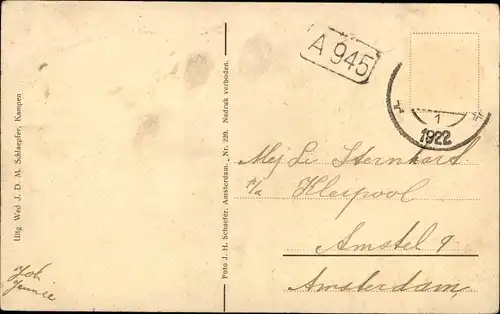 Uitg. Wed J. D. M. Schlaepfer, Kampen
Joh
Jennie
Foto J. H. Schaefer, Amsterdam. Nr. 220. Nadruk verboden.
A 945
1
1922
Mej Li Sternhart
p/a Kleipool
Amstel 9
Amsterdam,